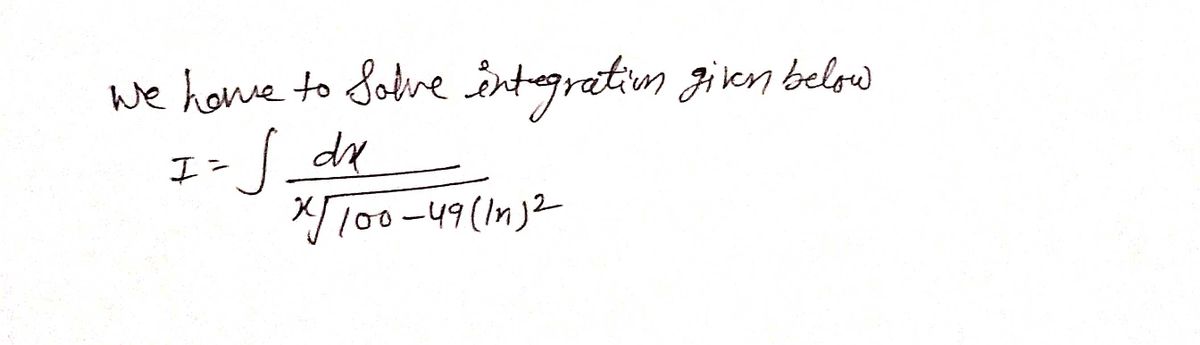 We have to Solve integration given below
I = ∫ dx / x√100-49(ln)²